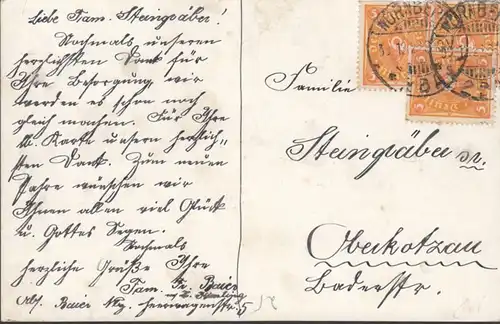 Liebe Fam. Steingräber!
Nochmals unseren
herzlichsten Dank für
Ihre Besorgung, wir
werden es schon noch
gleich machen. Für Ihre
w. Karte unsern herzlich-
sten Dank. Zum neuen
Jahre wünschen wir
Ihnen allen viel Glück
u. Gottes Segen.
Nochmals
herzliche Grüße Ihre
Fam. Baier
Abs. Baier Nbg. Herwegenstr. 5
NÜRNBERG
Familie
Steingräber sr.
Oberkotzau
Baderstr.